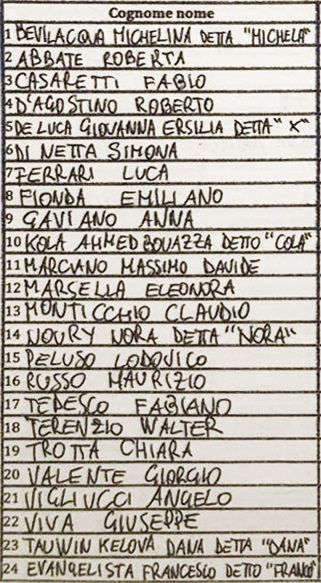 Cognome nome
1 BEVILACQUA MICHELINA DETTA "MICHELA"
2 ABBATE ROBERTA
3 CASARETTI FABIO
4 D'AGOSTINO ROBERTO
5 DE LUCA GIOVANNA ERSILIA DETTA "X"
6 DI NETTA SIMONA
7 FERRARI LUCA
8 FIONDA EMILIANO
9 GAVIANO ANNA
10 KOLA AHMED BOUAZZA DETTO "COLA"
11 MARCIANO MASSIMO DAVIDE
12 MARSELLA ELEONORA
13 MONTICCHIO CLAUDIO
14 NOURY NORA DETTA "NORA"
15 PELUSO LODOVICO
16 RUSSO MAURIZIO
17 TEDESCO FABIANO
18 TERENZIO WALTER
19 TROTTA CHIARA
20 VALENTE GIORGIO
21 VIGLIUCCI ANGELO
22 VIVA GIUSEPPE
23 TAUWIN KELOVA DANA DETTA "DANA"
24 EVANGELISTA FRANCESCO DETTO "FRANCO"